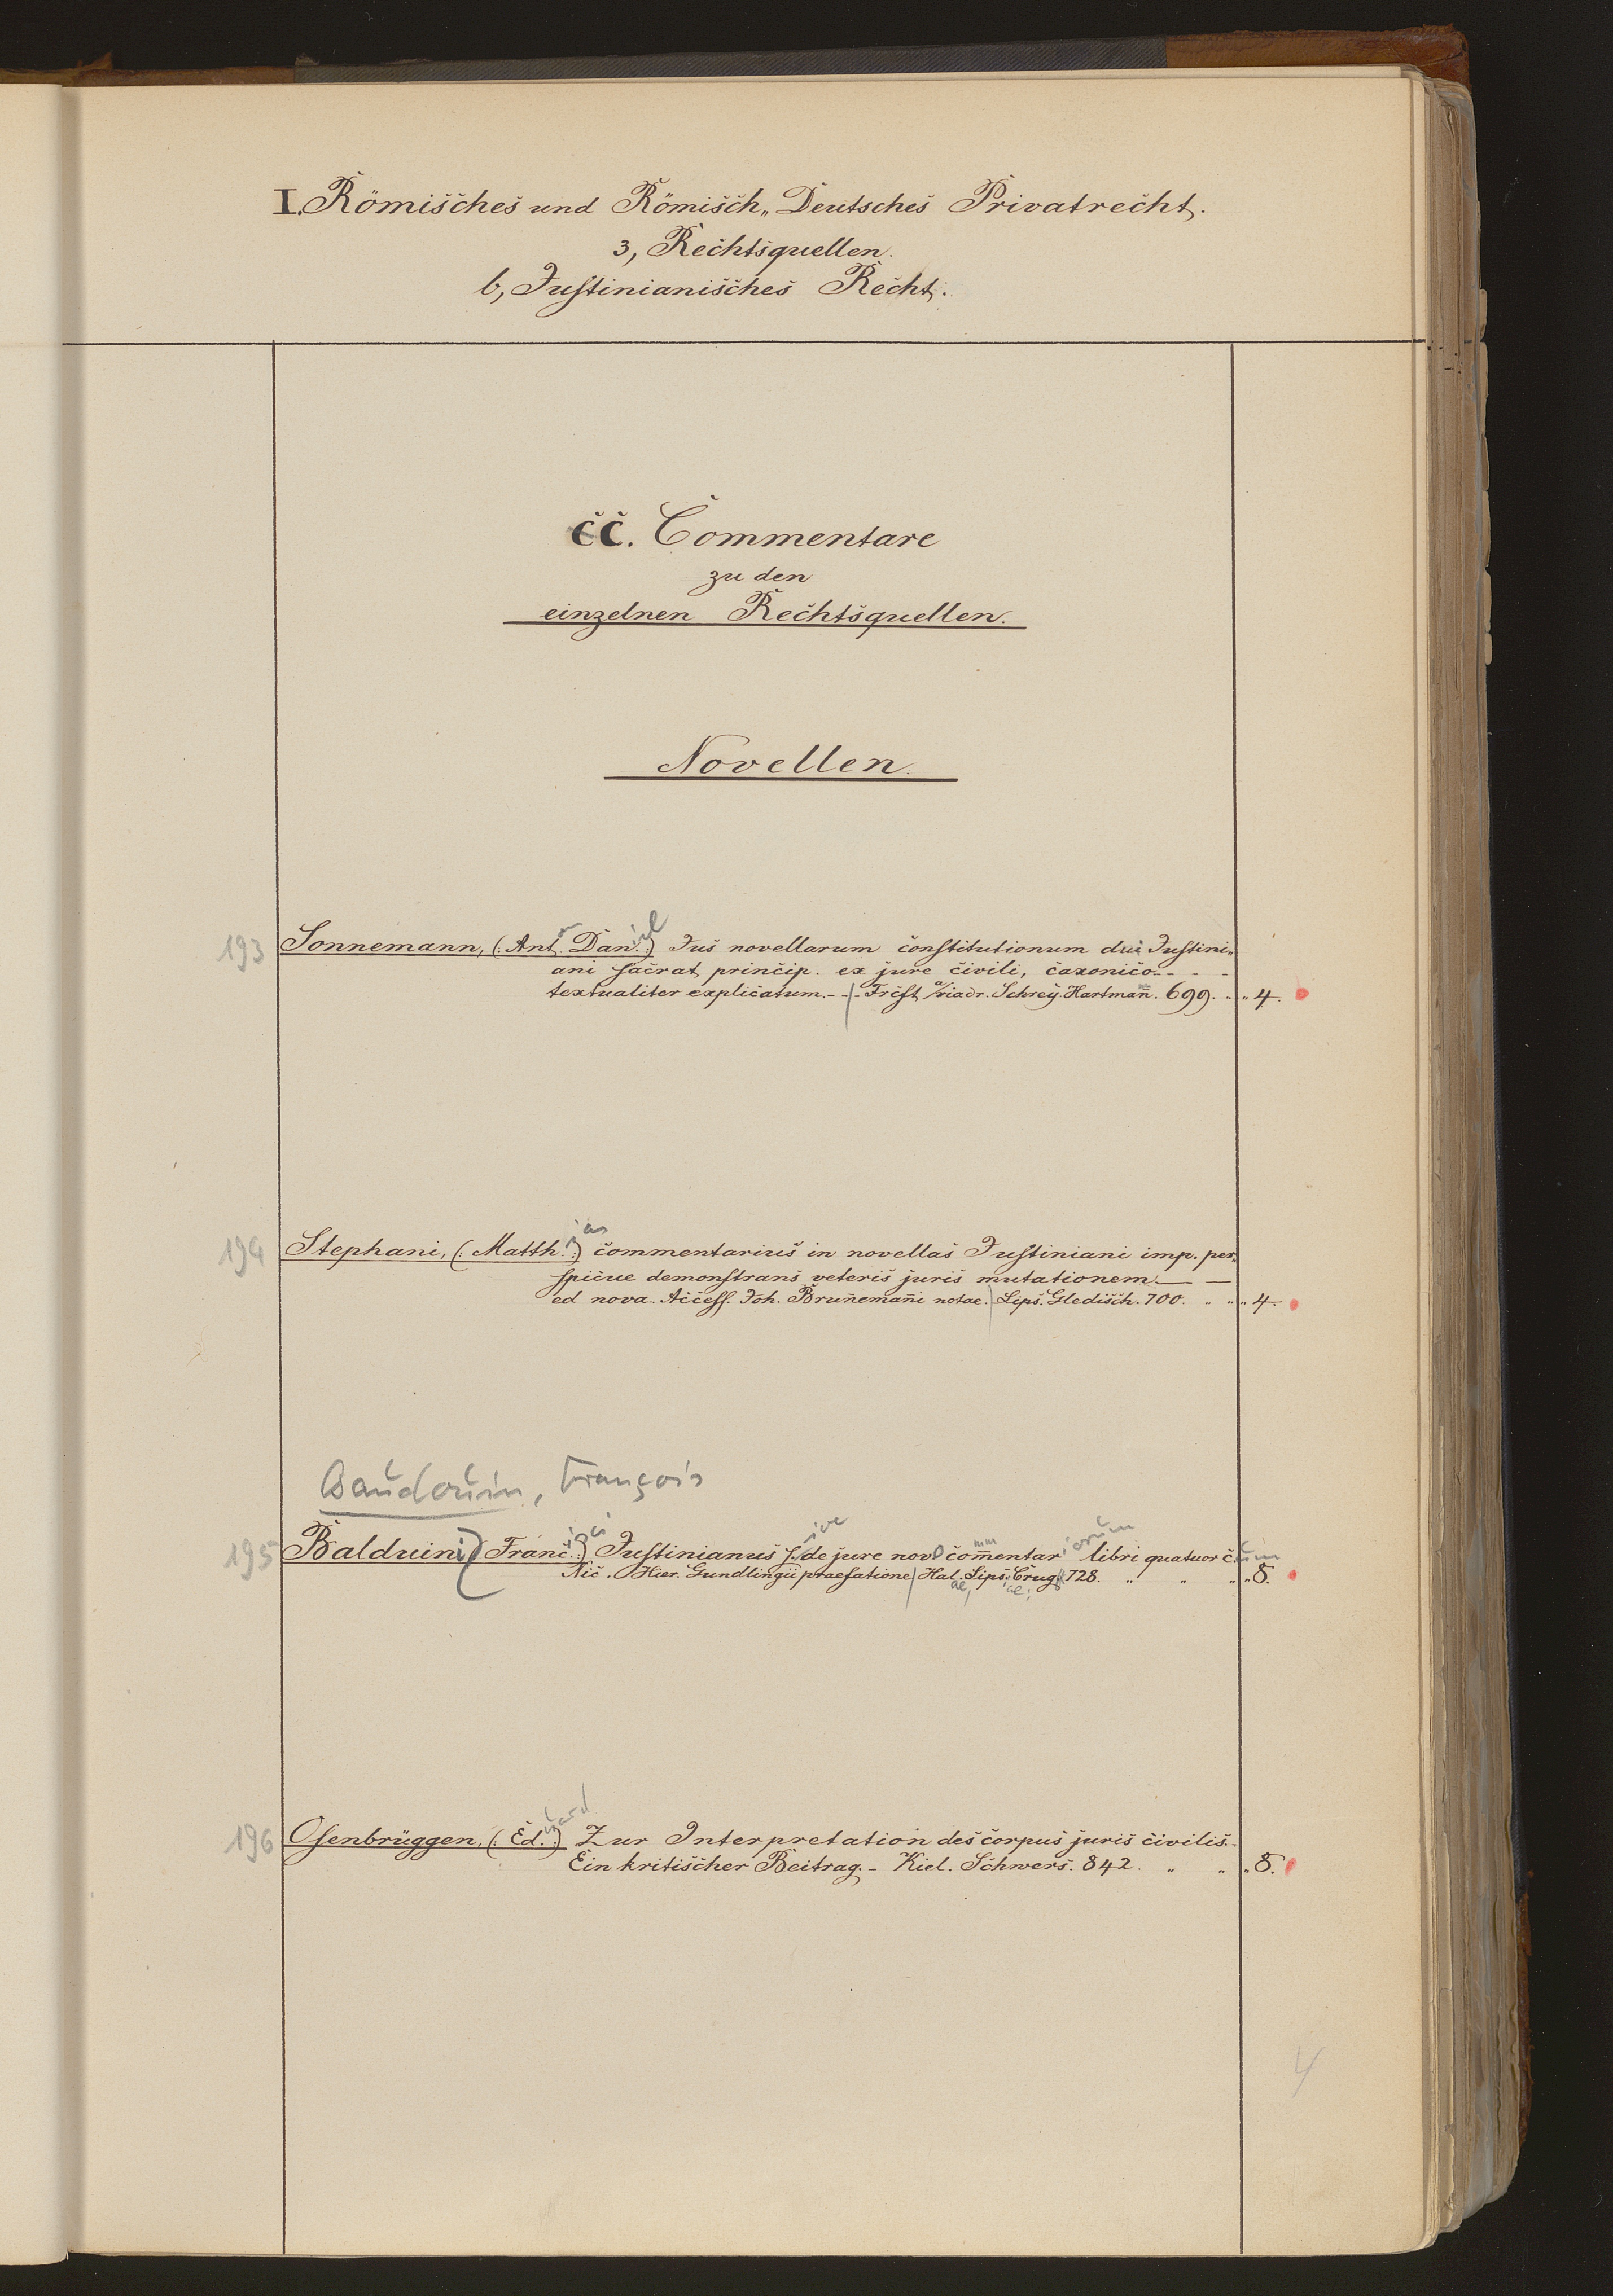 I. Römisches und Römisch„ Deutsches Privatrecht.
3, Rechtsquellen.
b, Justinianisches Recht.
cc. Commentare
zu den
einzelnen Rechtsquellen.
Novellen.
193 Sonnemann, (: Ant.on Dan.iel :) Jus novellarum constitutionum dni Justini„
ani sacrat. princip. ex jure civili, caxonico - - - -
textualiter explicatum. - - - Frcft a/viadr. Schrey. Hartmañ. 699. „ „ 4.
194 Stephani, (: Matth.ias :) commentarius in novellas Justiniani imp. per„
spicue demonstrans veteris juris mutationem — —
ed nova. Access. Joh. Bruñemañi notae. Lips. Gledisch. 700. „ „ „ 4.
Baudouin, François
195 Balduini (: Franc.isci :) Justinianus s.ive de jure novo com̄entar iorum libri quatuor c.um
Nic. Hier. Gundlingii praefatione Hal.ae, Lips.iae; Crug. 728. „ „ „ „ 8.
196 Osenbrüggen, (: Ed.uard :) Zur Interpretation des corpus juris civilis. -
Ein kritischer Beitrag. - Kiel. Schwers. 842. „ „ „ 8.
4